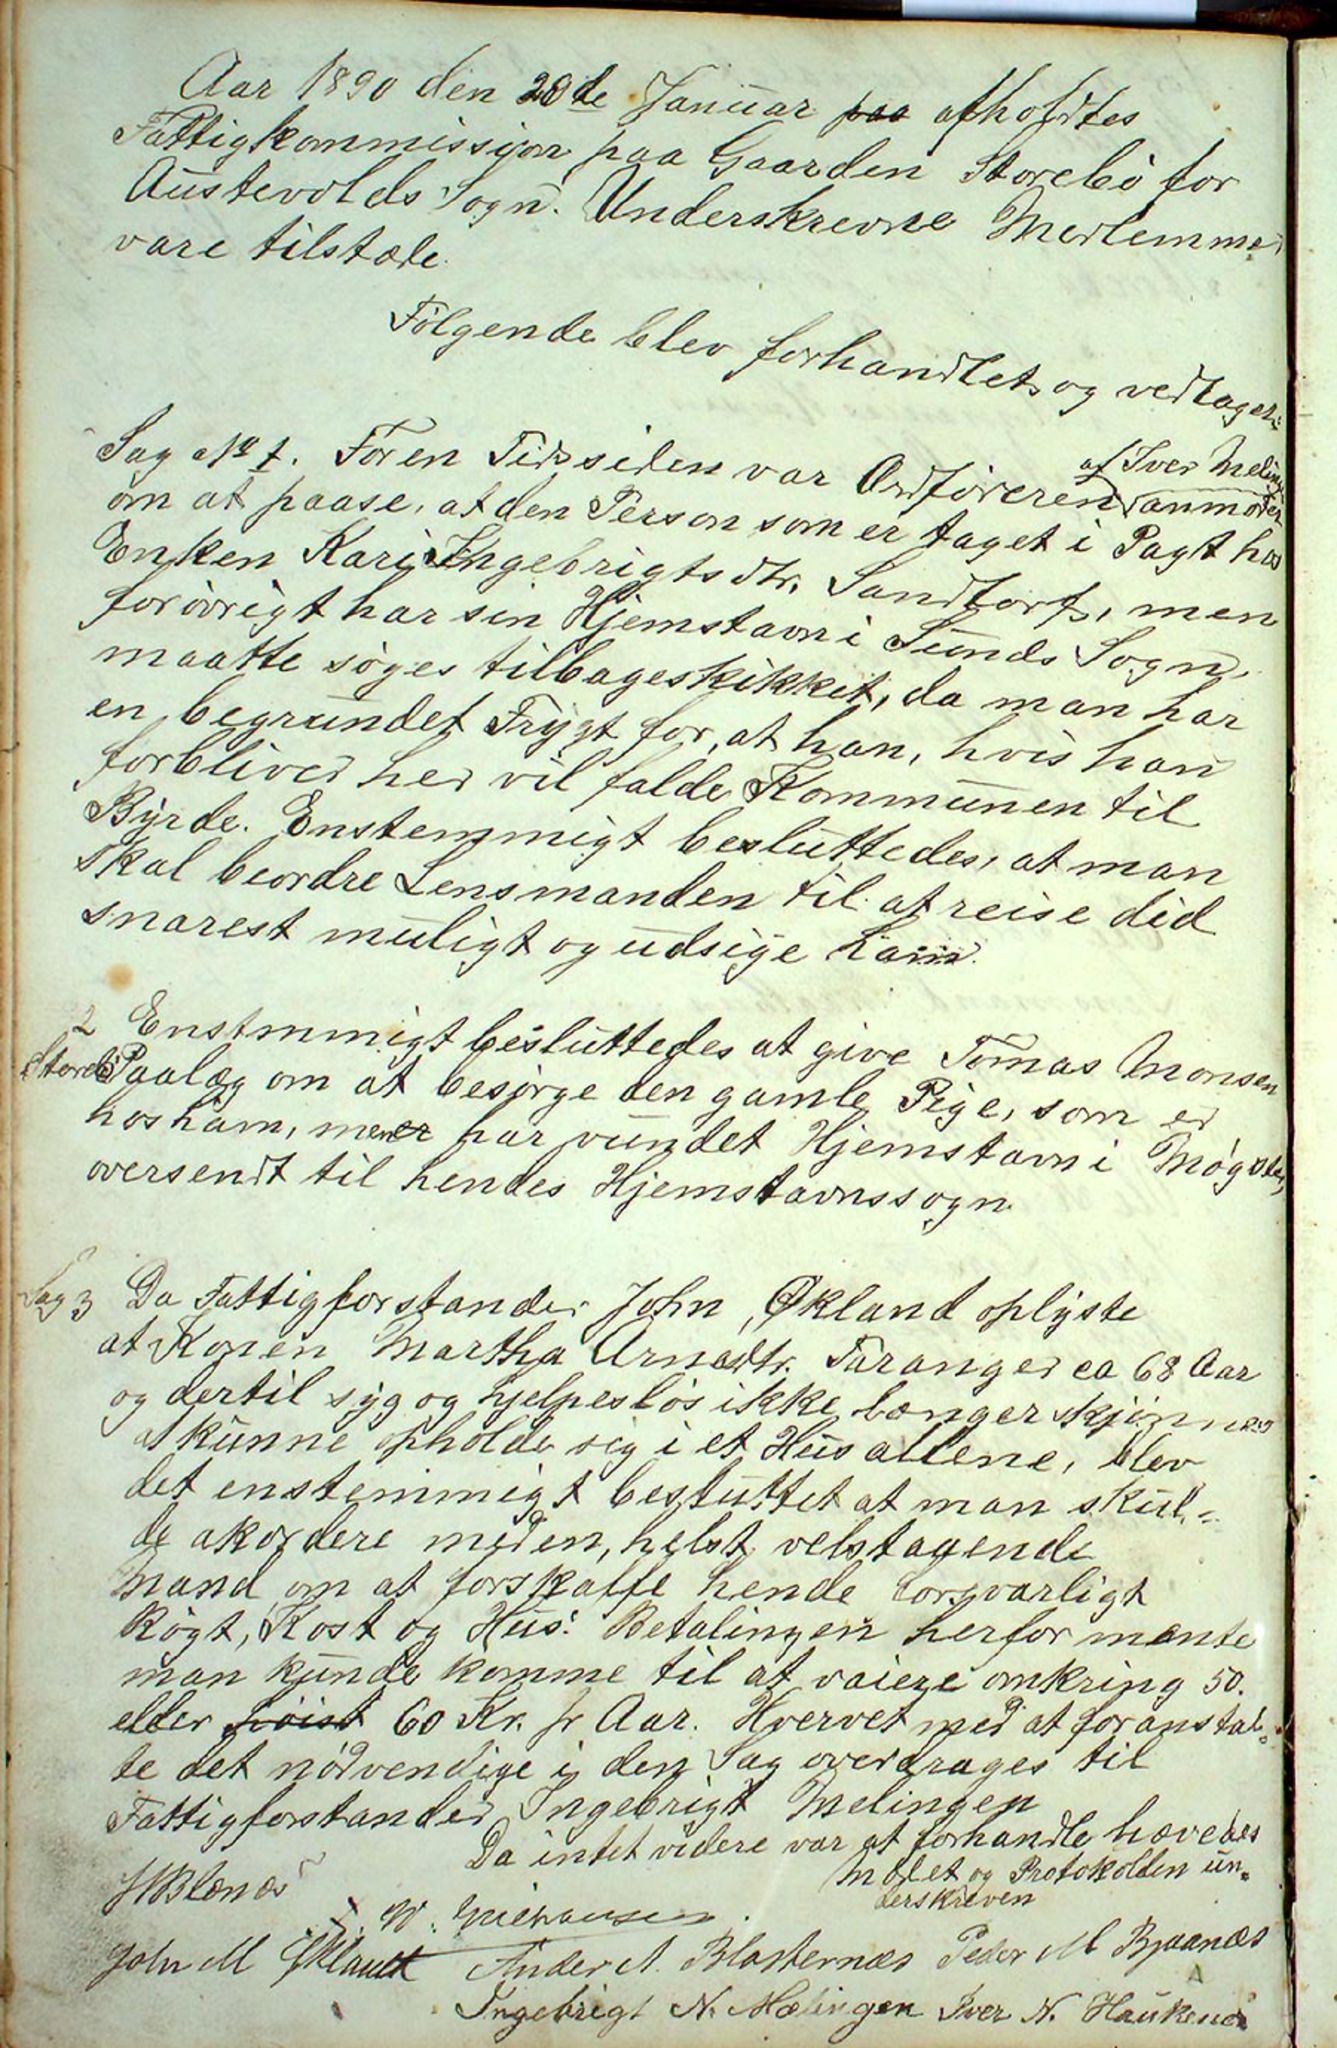 Aar 1890 den 28de Januar paa afholdtes
Fattigkommissijon paa Gaarden Storebö for
Austevolds Sogn. Underskrevne Medlemmer
vare tilstæde.
Fölgende blev forhandlet og vedtaget:
Sag No 1. For en Tid siden var Ordföreren af Iver Meling anmodet
om at paase, at den Person som er taget i Pagt hos
Enken Kari Ingebrigtsdtr. Sandtorf, men
forövrigt har sin Hjemstavn i Sunds Sogn,
maatte söges tilbageskikket, da man har
en begrundet Frygt for, at han, hvis han
forbliver her vil falde Kommunen til
Byrde. Enstemmigt besluttedes, at man
skal beordre Lensmanden til at reise did
snarest muligt og udsige ham.
2 Enstmmigt besluttedes at give Tomas Monsen
Storebö Paalæg om at besörge den gamle Pige, som er
hos ham, men har vundet Hjemstavn i Mögster,
oversendt til hendes Hjemstavnssogn.
Sag 3 Da Fattigforstander John Økland oplyste
at Konen Martha Arnedtr. Taranger ca 68 Aar
og dertil syg og hjelpeslös ikke længer skjönnes
at kunne opholde sig i et Hus allene, blev
det enstemmigt besluttet at man skul-
de akordere med en, helst velstagende
Mand om at forskaffe hende forsvarligt
Rögt, Kost og Hus. Betalingen herfor mente
man kunde komme til at vaiere omkring 50.
eller höist 60 Kr. pr Aar. Hvervet med at foranstal-
te det nödvendige i den Sag overdrages til
Fattigforstander Ingebrigt Melingen
Da intet videre var at forhandle hævedes
Mödet og Protokollen un-
derskreven
HBlænæs
W.
John M Økland Ander A. Blosternæs Peder M Bjaanæs
Ingebrigt N. Mælingen Iver N. Haukenæs